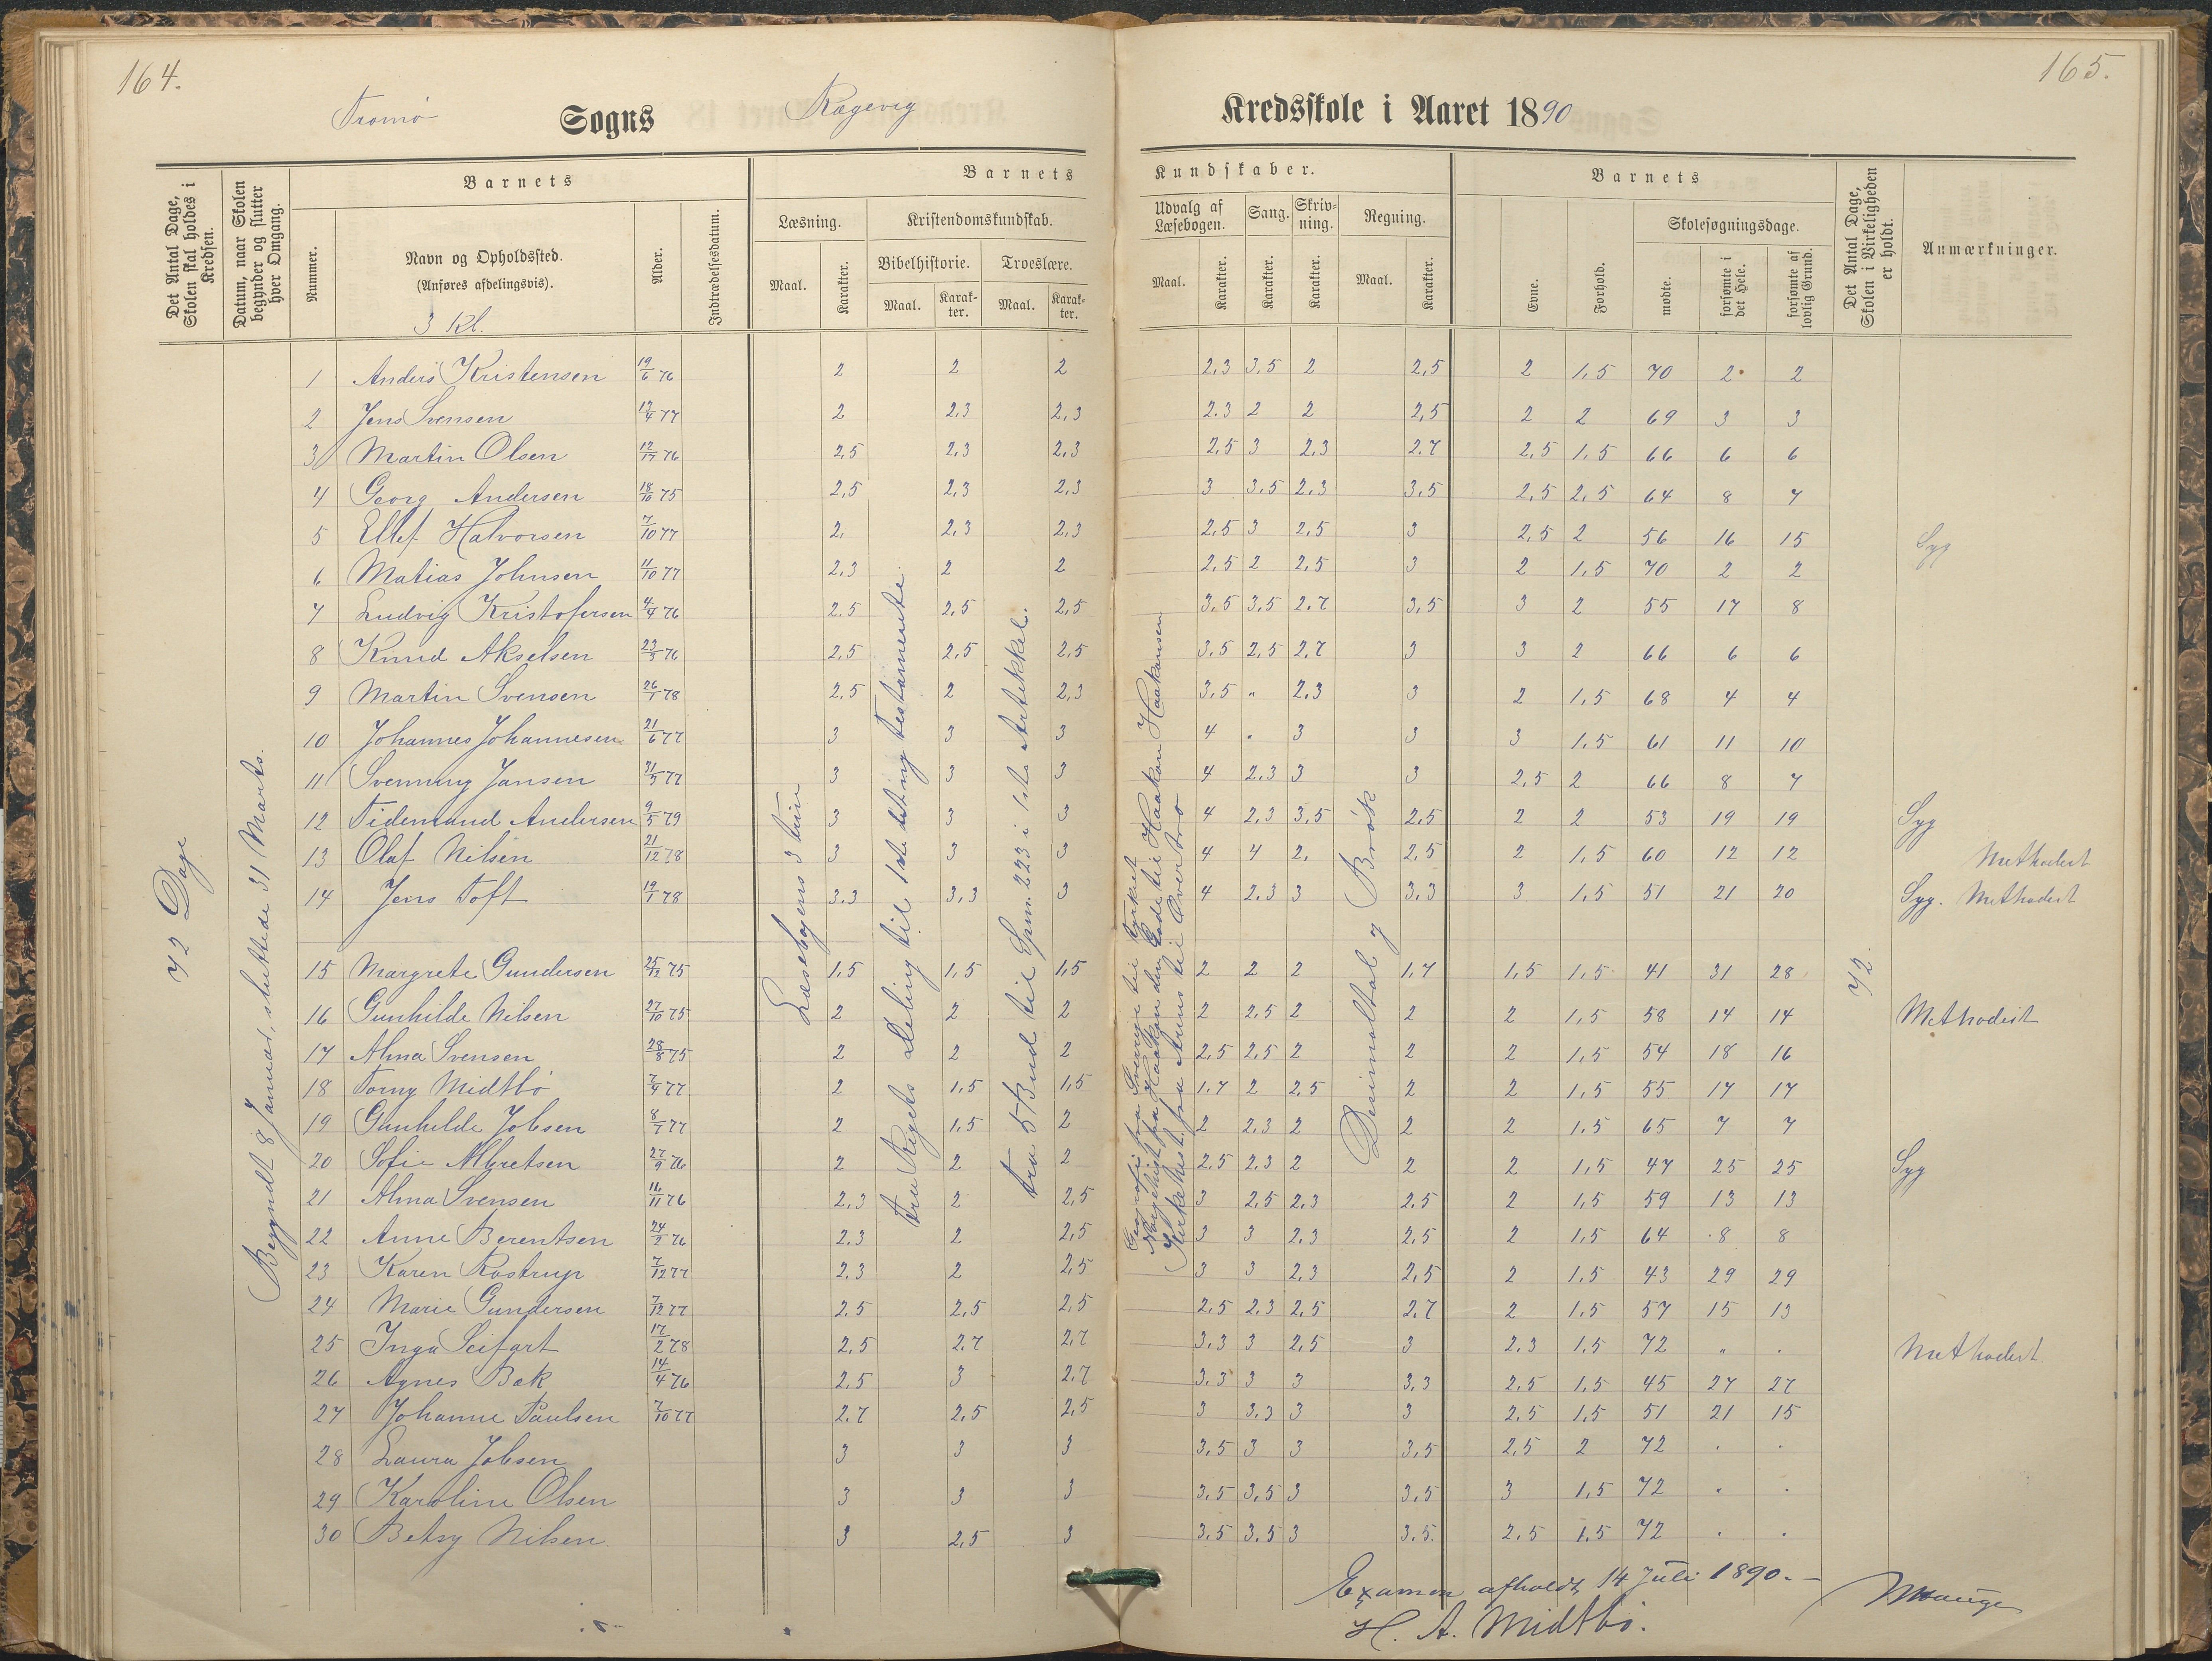 164.
165.
Tromø Sogns Rægevig Kredsskole i Aaret 1890
Det Antal Dage, Skolen skal holdes i Kredsen.
Datum, naar Skolen begynder og slutter hver Omgang.
Barnets
Nummer.
Navn og Opholdssted.
(Anføres afdelingsvis).
3 Kl.
Alder.
Indtrædelsesdatum.
Barnets Kundskaber.
Læsning.
Maal.
Karakter.
Kristendomskundskab.
Bibelhistorie.
Maal.
Karakter.
Troeslære.
Maal.
Karakter.
Udvalg af Læsebogen.
Maal.
Karakter.
Sang.
Karakter.
Skrivning.
Karakter.
Regning.
Maal.
Karakter.
Barnets
Evne.
Forhold.
Skolesøgningsdage.
mødte.
forsømte i det Hele.
forsømte af lovlig Grund.
Det Antal Dage, Skolen i Virkeligheden er holdt.
Anmærkninger.
72 Dage
Begyndt 8 Januar, sluttede 31 Marts.
Læsebogens 3 trin
fra Rigets Deling til 1ste det ny testamente.
fra 5 Bud til Spm. 223 i 1ste Artikkel.
Geografi fra Sverige til tyrkiet
Norgehist. fra Haakon den Gode til Haakon Haakonsen
Kirkehist. fra Arius til Overtro
Desimaltal og Brøk
72
1 Anders Kristensen 19/6 76 2 2 2 2,3 3,5 2 2,5 2 1,5 70 2 2
2 Jens Svensen 12/4 77 2 2,3 2,3 2.3 2 2 2,5 2 2 69 3 3
3 Martin Olsen 12/17 76 2,5 2,3 2,3 2,5 3 2,3 2.7 2,5 1,5 66 6 6
4 Georg Andersen 18/10 75 2,5 2,3 2,3 3 3,5 2,3 3,5 2,5 2,5 64 8 7
5 Ellef Halvorsen 7/10 77 2, 2,3 2,3 2,5 3 2,5 3 2,5 2 56 16 15 Syg
6 Matias Johnsen 11/10 77 2,3 2 2 2,5 2 2,5 3 2 1,5 70 2 2
7 Ludvig Kristofersen 4/4 76 2.5 2,5 2,5 3,5 3,5 2.7 3,5 3 2 55 17 8
8 Knud Akselsen 23/3 76 2,5 2,5 2,5 3,5 2,5 2,7 3 3 2 66 6 6
9 Martin Svensen 26/1 78 2,5 2 2,3 3,5 " 2,3 3 2 1,5 68 4 4
10 Johannes Johannesen 21/6 77 3 3 3 4 " 3 3 3 1,5 61 11 10
11 Svenning Jansen 31/3 77 3 3 3 4 2,3 3 3 2,5 2 66 8 7
12 Tidemand Andersen 9/5 79 3 3 3 4 2,3 3,5 2,5 2 2 53 19 19 Syg
13 Olaf Nilsen 21/12 78 3 3 3 4 4 2, 2,5 2 1,5 60 12 12 Methodist
14 Jens Toft 19/1 78 3.3 3,3 3 4 2,3 3 3,3 3 1,5 51 21 20 Syg. Methodist
15 Margrete Gundersen 25/12 75 1,5 1,5 1,5 2 2 2 1,7 1,5 1,5 41 31 28
16 Gunhilde Nilsen 27/10 75 2 2 2 2 2,5 2 2 2 1,5 58 14 14 Methodist
17 Alma Svensen 28/8 75 2 2 2 2,5 2,5 2 2 2 1,5 54 18 16
18 Torny Midtbö 7/9 77 2 1,5 1,5 1.7 2 2,5 2 2 1,5 55 17 17
19 Gunhilde Jobsen 8/7 77 2 1,5 2 2 2,3 2 2 2 1,5 65 7 7
20 Sofie Albretsen 27/9 76 2 2 2 2,5 2,3 2 2 2 1,5 47 25 25 Syg
21 Alma Svensen 16/11 76 2,3 2 2,5 3 2,5 2,3 2.5 2 1,5 59 13 13
22 Anne Berentsen 24/2 76 2,3 2 2,5 3 3 2,3 2,5 2 1,5 64 8 8
23 Karen Rostrup 7/12 77 2,3 2 2,5 3 3 2,3 2,5 2 1,5 43 29 29
24 Marie Gundersen 7/12 77 2,5 2,5 2,5 2,5 2,3 2,5 2.7 2 1,5 57 15 13
25 Inga Seifart 17/2 78 2,5 2,7 2,7 3,3 3 2,5 3 2,3 1,5 72 " . Methodist
26 Agnes Bæk 14/4 76 2,5 3 2,7 3,3 3 3 3,3 2,5 1,5 45 27 27
27 Johanne Paulsen 7/10 77 2.7 2,5 2,5 3 3,3 3 3 2,5 1,5 51 21 15
28 Laura Jobsen 3 3 3 3,5 3 3 3,5 2,5 2 72 . .
29 Karoline Olsen 3 3 3 3,5 3,5 3 3,5 3 1,5 72 " .
30 Betsy Nilsen 3 2,5 3 3,5 3,5 3 3,5. 2,5 1,5 72 . .
Examen afholdt 14 Juli 1890.
H. A. Midtbö.